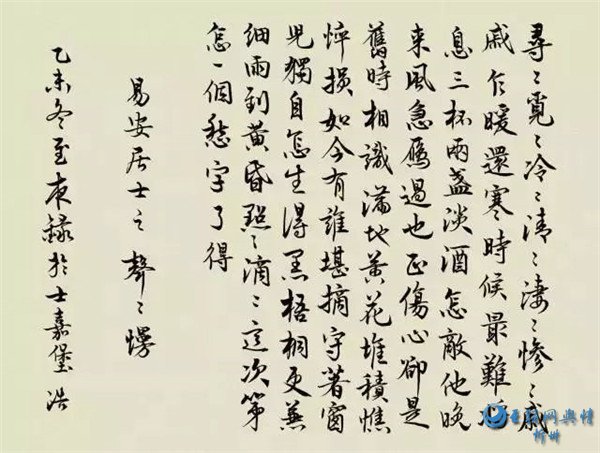 尋〻覓〻冷〻清〻淒〻慘〻戚
戚乍暖還寒時候最難將
息三杯兩盞淡酒怎敵他晚
来風急雁過也正傷心卻是
舊時相識滿地黃花堆積憔
悴损如今有誰堪摘守著窗
兒獨自怎生得黑梧桐更兼
细雨到黃昏點〻滴〻這次第
怎一個愁字了得
易安居士之 聲〻慢
乙未冬至夜錄於士嘉堡 浩
互联网舆情
忻州